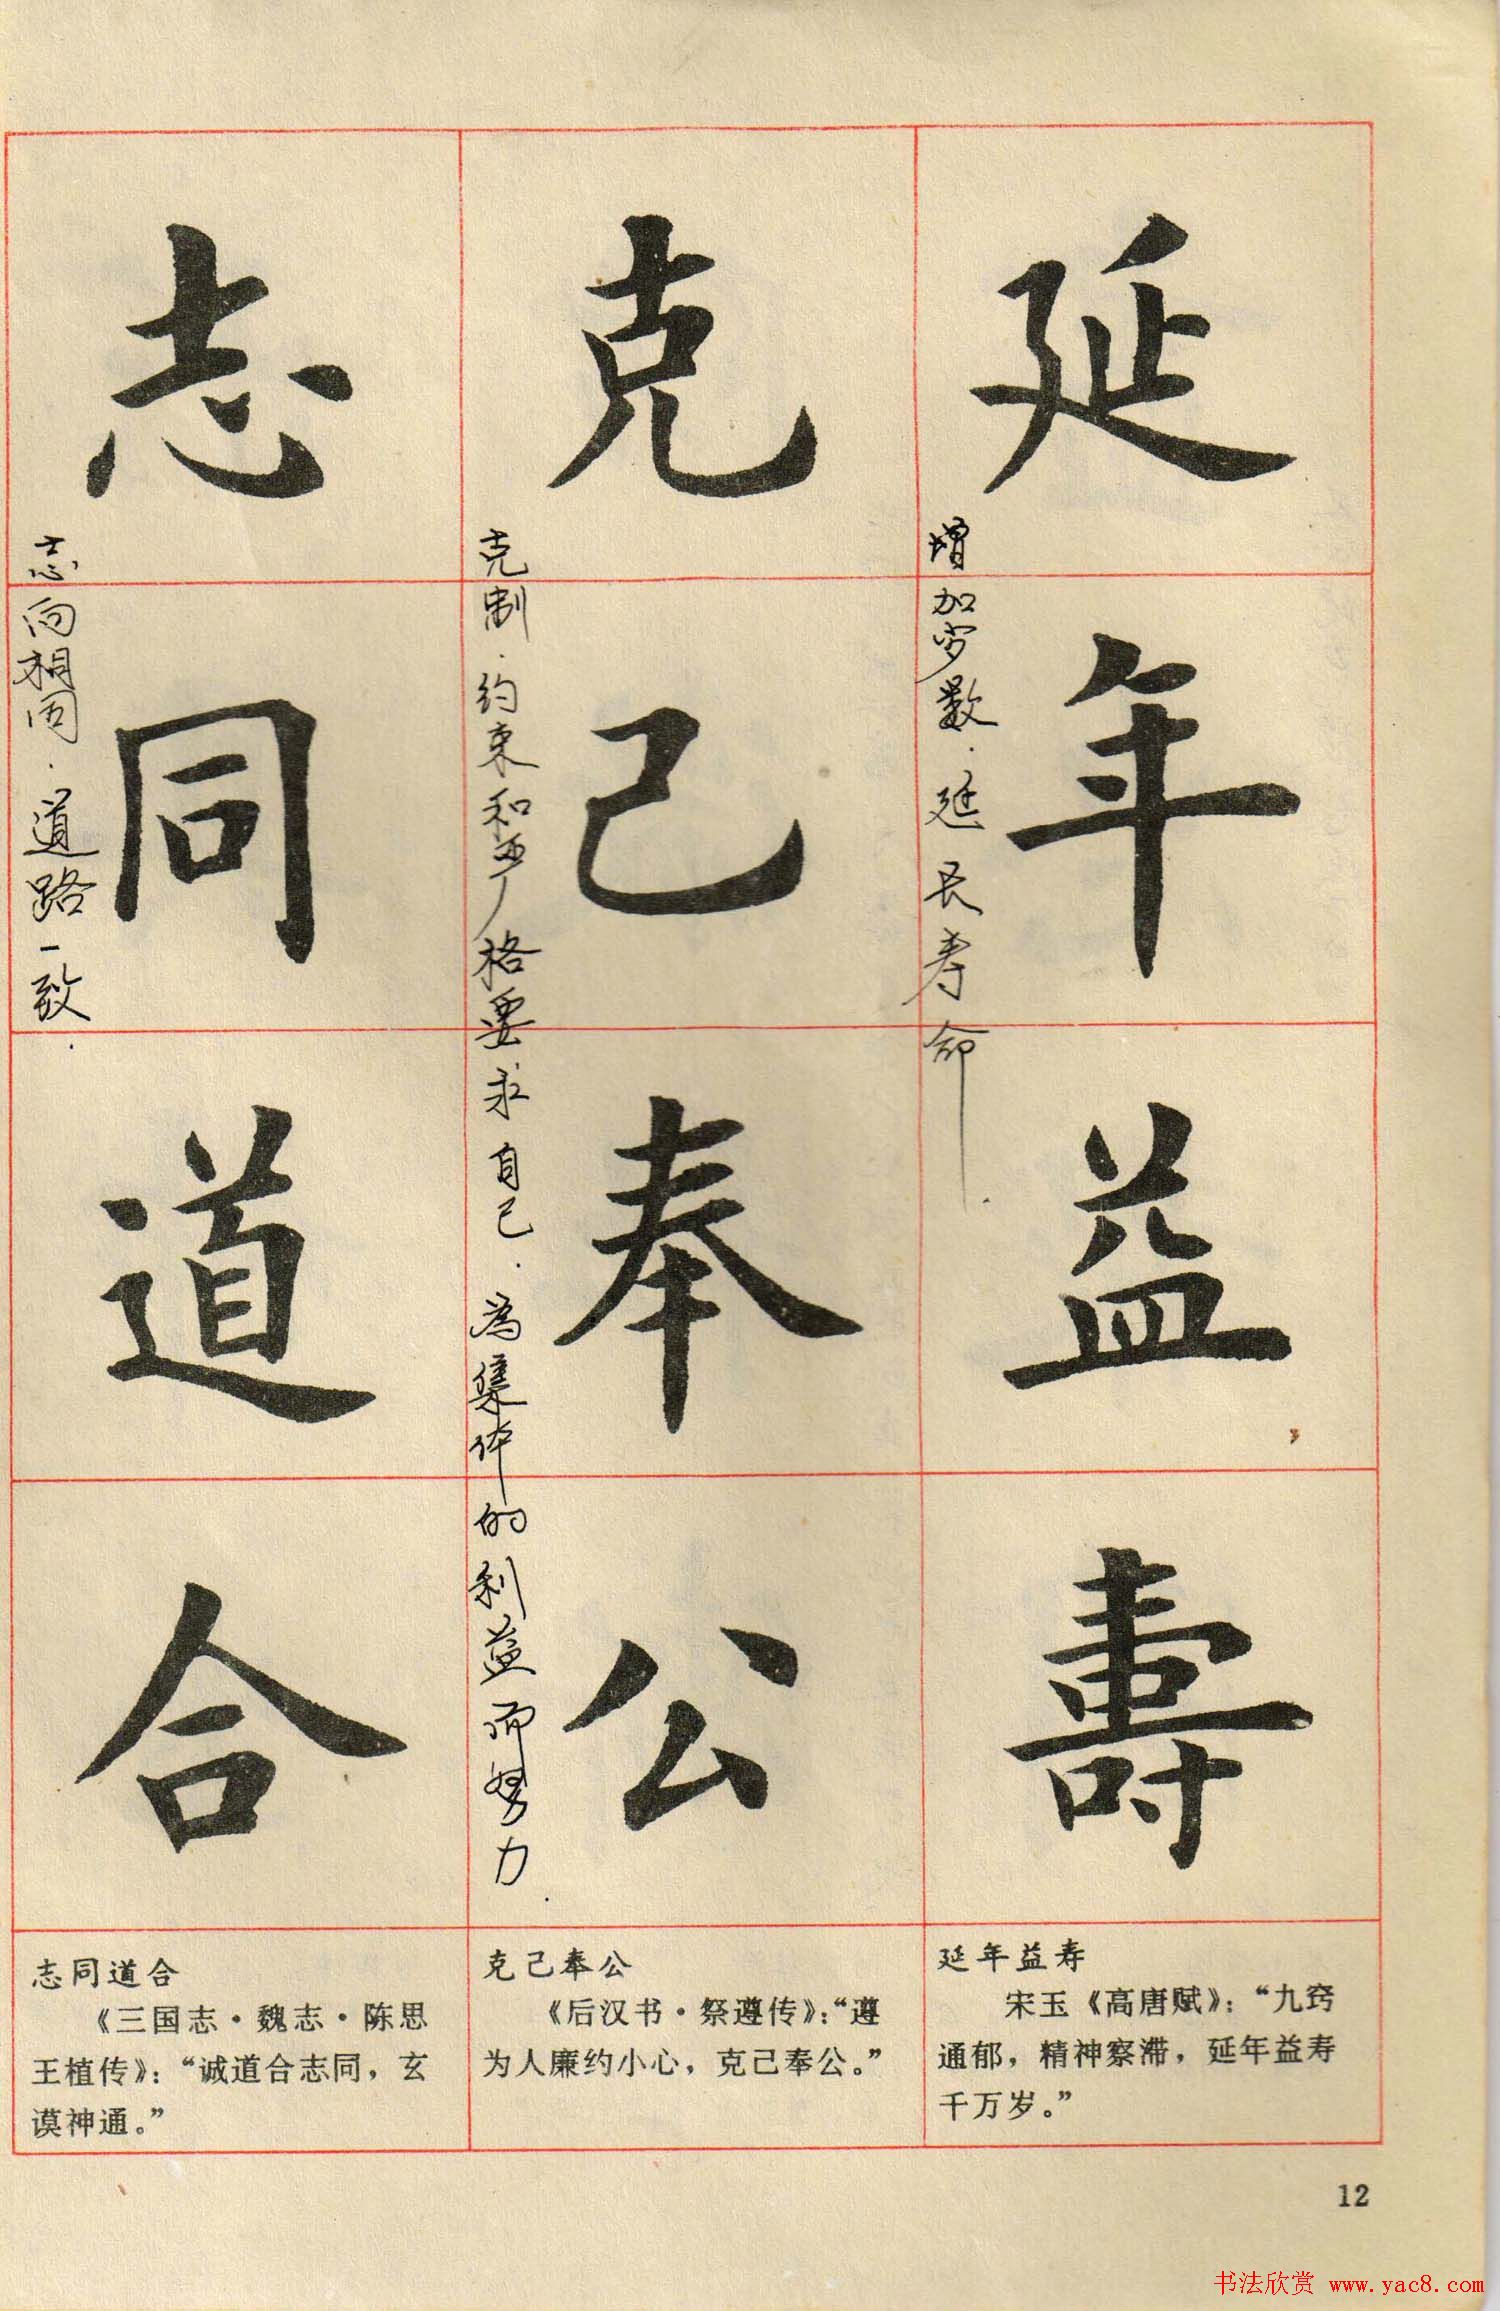 延年益壽
增加岁数.延长寿命.
克己奉公
克制.约束和严格要求自己.为集体的利益而努力.
志同道合
志向相同.道路一致.
延年益寿
宋玉《高唐赋》：“九窍
通郁，精神察滞，延年益寿
千万岁。”
克己奉公
《后汉书·祭遵传》：“遵
为人廉约小心，克己奉公。”
志同道合
《三国志·魏志·陈思
王植传》：“诚道合志同，玄
谟神通。”
12
书法欣赏 www.yac8.com